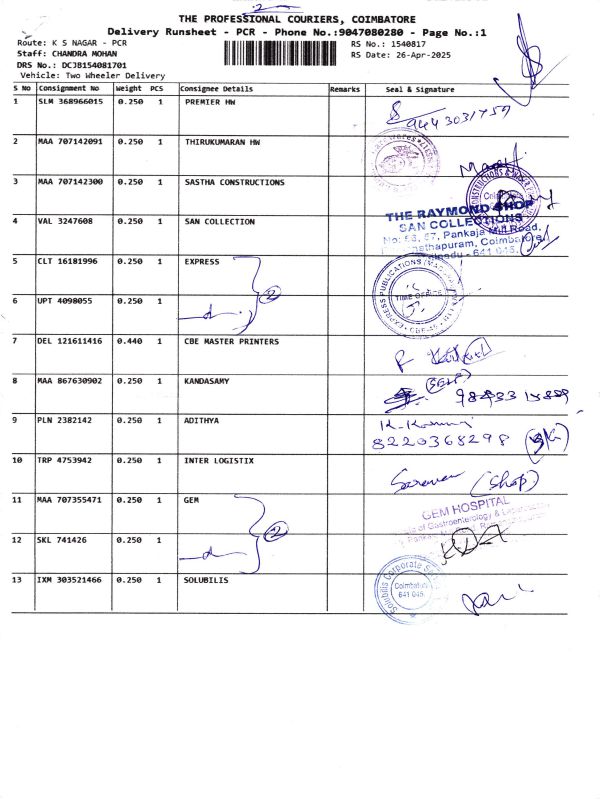 2
THE PROFESSIONAL COURIERS, COIMBATORE
Delivery Runsheet - PCR - Phone No.:9047080280 - Page No.:1
Route: K S NAGAR - PCR
RS No.: 1540817
Staff: CHANDRA MOHAN
RS Date: 26-Apr-2025
DRS No.: DCJB154081701
Vehicle: Two Wheeler Delivery
S No Consignment No Weight PCS Consignee Details Remarks Seal & Signature
1 SLM 368966015 0.250 1 PREMIER HW
2 MAA 707142091 0.250 1 THIRUKUMARAN HW
3 MAA 707142300 0.250 1 SASTHA CONSTRUCTIONS
4 VAL 3247608 0.250 1 SAN COLLECTION
THE RAYMOND SHOP
SAN COLLECTIONS
No: 56, 57, Pankaja Mill Road,
Coimbatore
641 045.
5 CLT 16181996 0.250 1 EXPRESS
2
EXPRESS PUBLICATIONS
TIME OFFICE
CBE-45
6 UPT 4098055 0.250 1
7 DEL 121611416 0.440 1 CBE MASTER PRINTERS
8 MAA 867630902 0.250 1 KANDASAMY
9 PLN 2382142 0.250 1 ADITHYA
8220368298
10 TRP 4753942 0.250 1 INTER LOGISTIX
(Shop)
11 MAA 707355471 0.250 1 GEM
2
GEM HOSPITAL
of Gastroenterology &
12 SKL 741426 0.250 1
13 IXM 303521466 0.250 1 SOLUBILIS
Solubilis Corporate
Coimbatore
641 045.